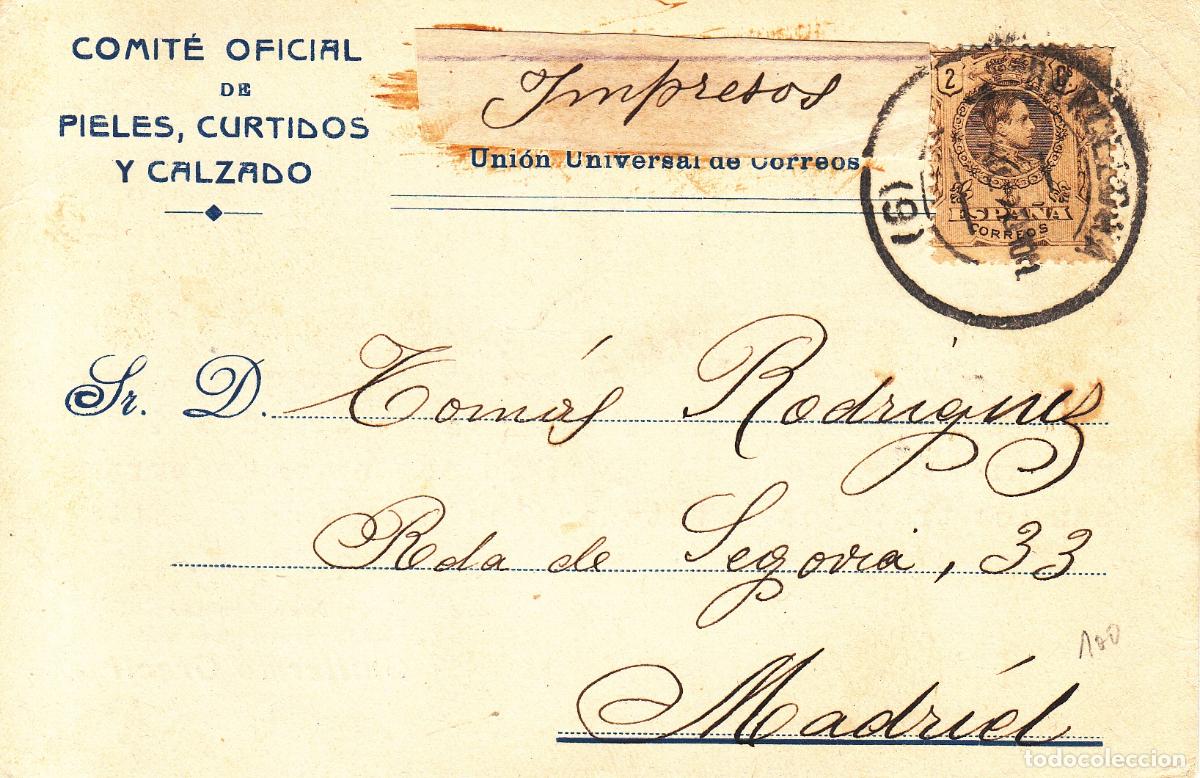 COMITÉ OFICIAL
DE
PIELES, CURTIDOS
Y CALZADO
Impresos
Unión Universal de Correos
2
ESPAÑA
CORREOS
(6)
Sr. D. Tomás Rodríguez
Rda de Segovia, 33
Madrid
100
todocoleccion